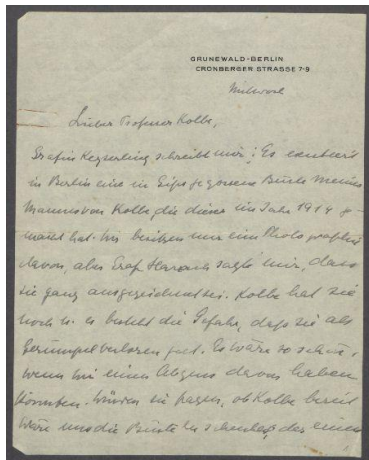 GRUNEWALD-BERLIN
CRONBERGER STRASSE 7-9
Mittwoch
Lieber Professor Kolbe,
Gräfin Keyserling schreibt mir: "Es existiert
in Berlin eine in Gips gegossene Büste meines
Mannes von Kolbe, die dieser im Jahr 1914 ge-
macht hat. Wir besitzen nur eine Photographie
davon, aber Graf Harrach sagte mir, dass
sie ganz ausgezeichnet sei. Kolbe hat sie
noch u. es besteht die Gefahr, dass sie als
Gerümpel verloren geht. Es wäre so schön,
wenn wir einen Abguss davon haben
könnten. Würden Sie fragen, ob Kolbe bereit
wäre uns die Büste zu schenken, der einen